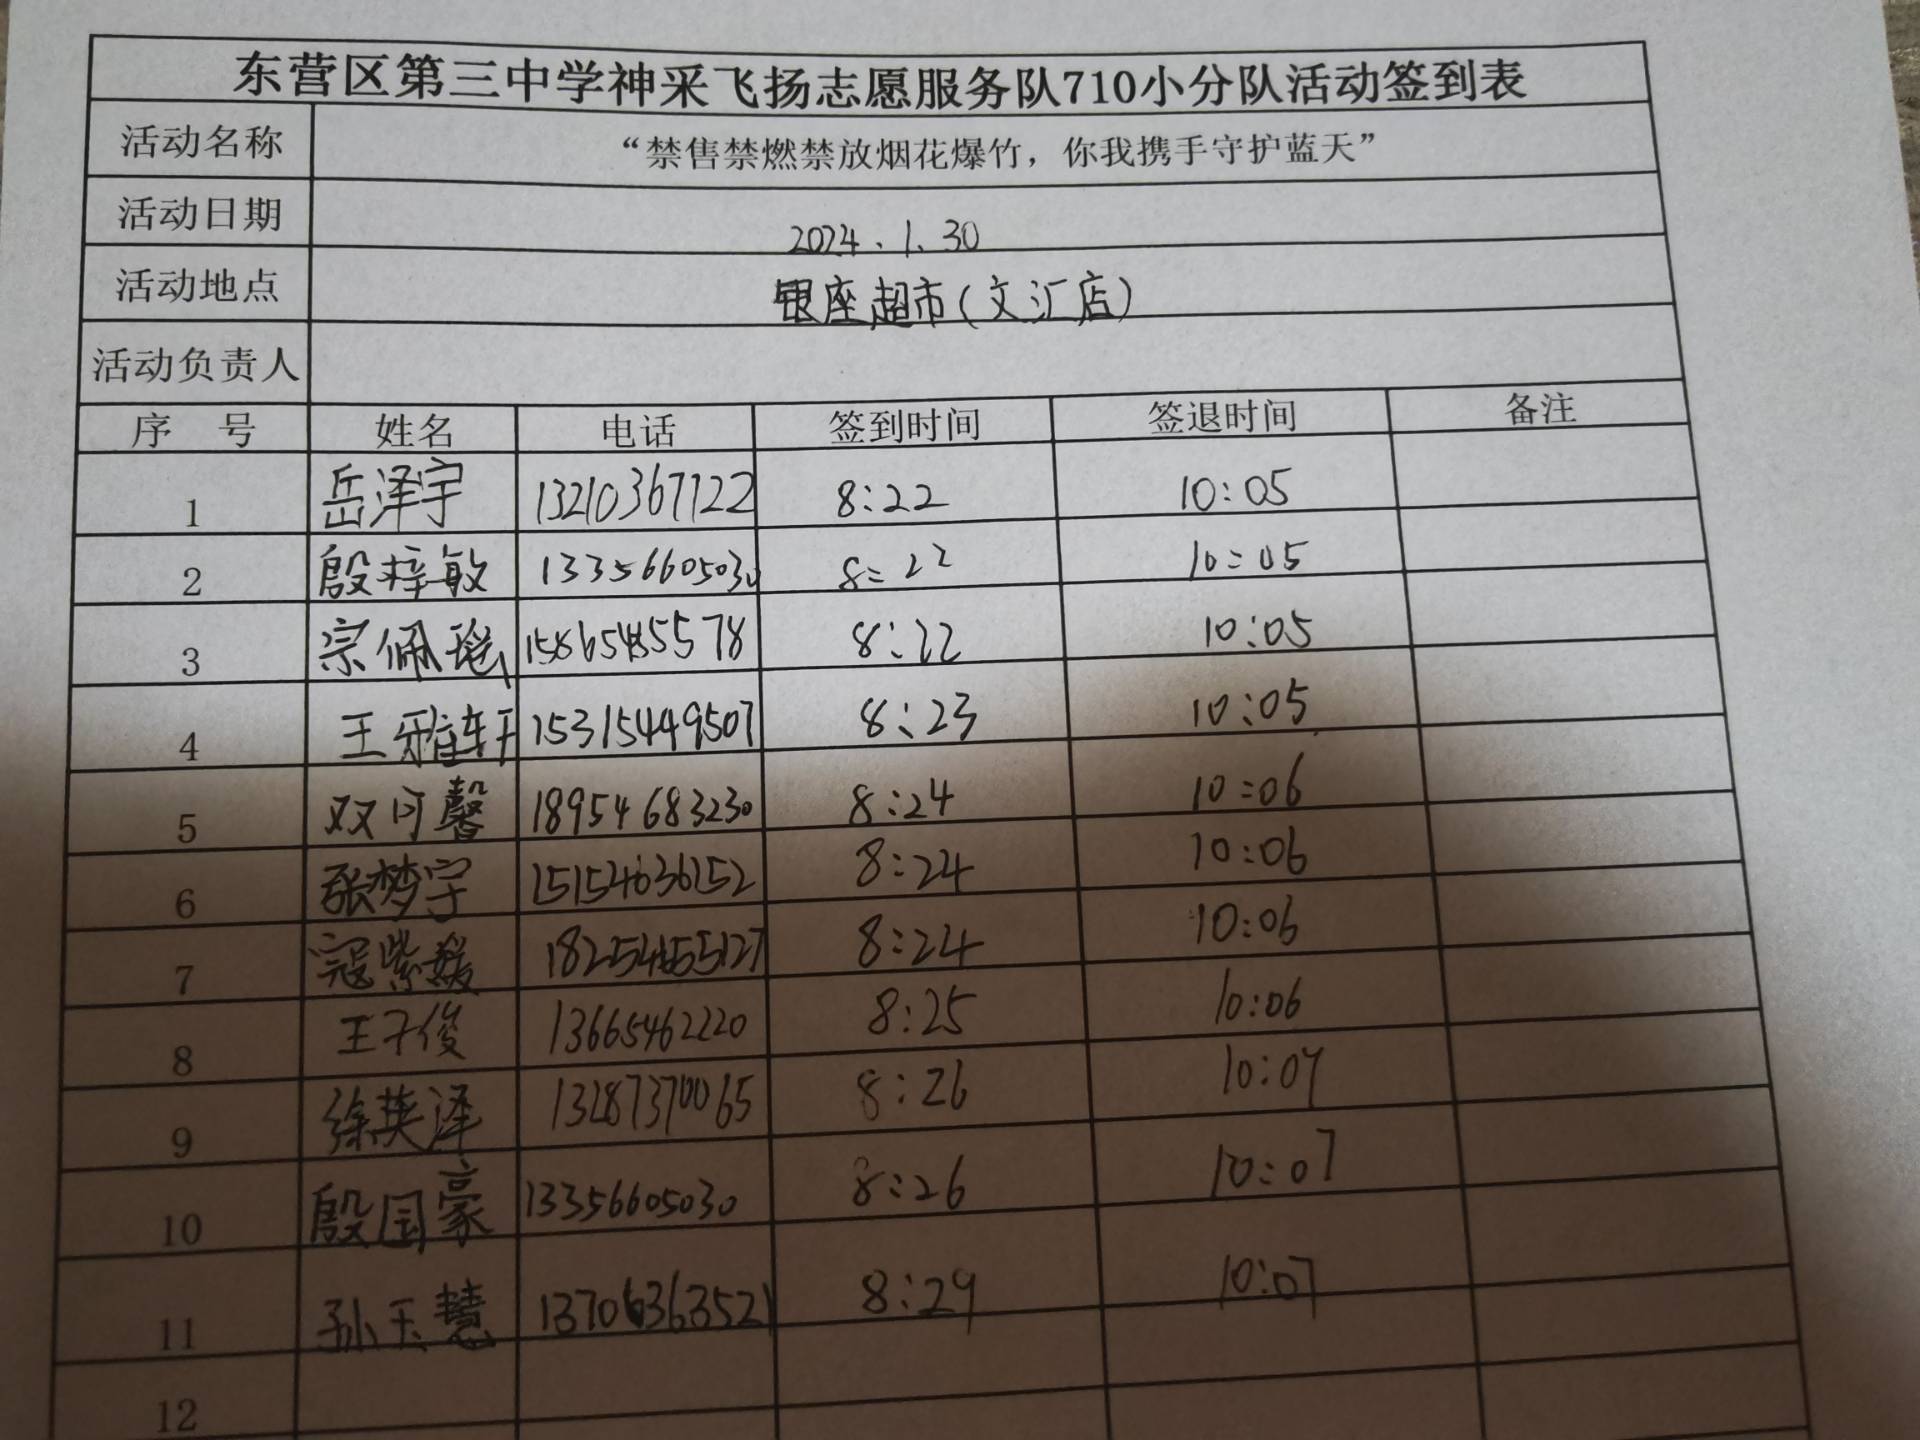 东营区第三中学神采飞扬志愿服务队710小分队活动签到表
活动名称 “禁售禁燃禁放烟花爆竹，你我携手守护蓝天”
活动日期 2024.1.30
活动地点 银座超市(文汇店)
活动负责人
序 号 姓名 电话 签到时间 签退时间 备注
1 岳泽宇 13210367122 8:22 10:05
2 殷梓敏 13356605030 8:22 10:05
3 宗佩瑶 8:22 10:05
4 王雅轩 15315449507 8:23 10:05
5 双可馨 18954683230 8:24 10:06
6 张梦宇 15154636152 8:24 10:06
7 寇紫媛 8:24 10:06
8 王子俊 13665462220 8:25 10:06
9 徐英泽 13287370065 8:26 10:07
10 殷国豪 13356605030 8:26 10:07
11 孙玉慧 13706363521 8:29 10:07
12